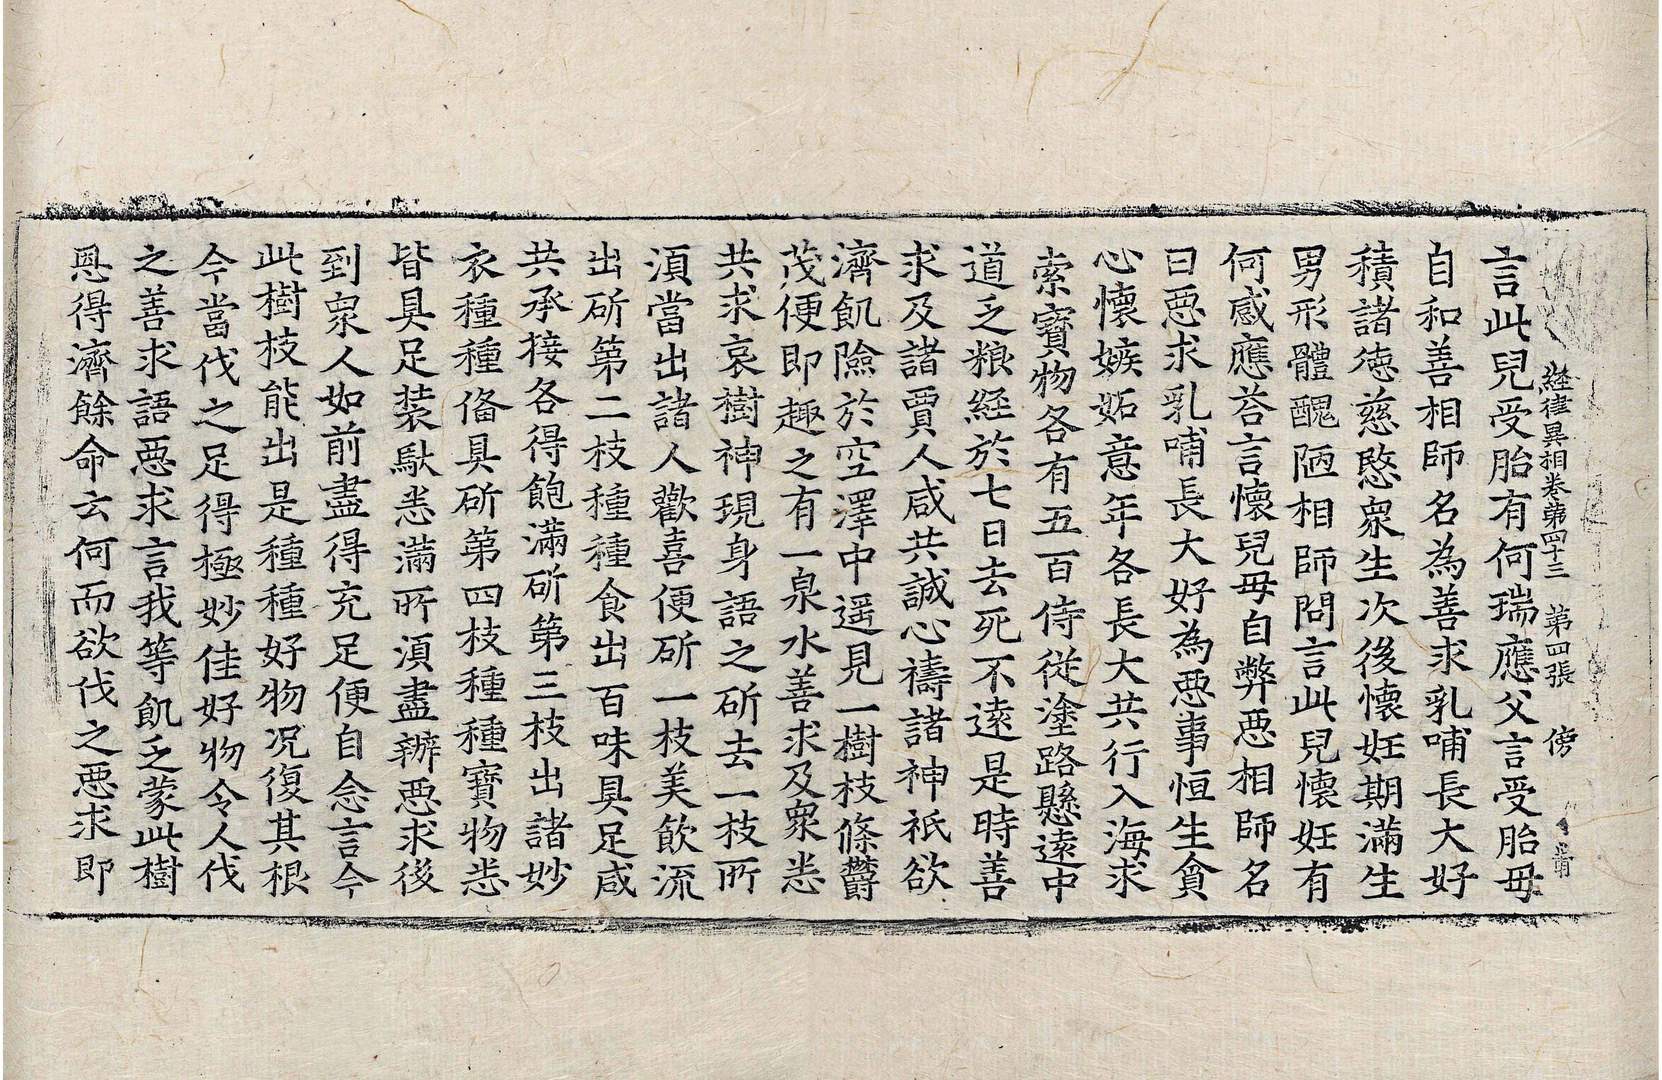 経律異相卷第四十三 第四張 傍
言此兒受胎有何瑞應父言受胎毋
自和善相師名為善求乳哺長大好
積諸德慈愍衆生次後懷妊期滿生
男形體醜陋相師問言此兒懷妊有
何感應荅言懷兒毋自弊惡相師名
曰惡求乳哺長大好為惡事恒生貪
心懷嫉妬意年各長大共行入海求
索寶物各有五百侍從塗路懸遠中
道乏粮経於七日去死不遠是時善
求及諸賈人咸共誠心禱諸神祇欲
濟飢險於空澤中遥見一樹枝條欝
茂便即趣之有一泉水善求及衆悉
共求哀樹神現身語之斫去一枝所
湏當出諸人歡喜便斫一枝美飲流
出斫第二枝種種食出百味具足咸
共承接各得飽滿斫第三枝出諸妙
衣種種俻具斫第四枝種種寶物悉
皆具足裝馱悉滿所湏盡辦惡求後
到衆人如前盡得充足便自念言今
此樹枝能出是種種好物况復其根
今當伐之足得極妙佳好物令人伐
之善求語惡求言我等飢乏蒙此樹
恩得濟餘命云何而欲伐之惡求即